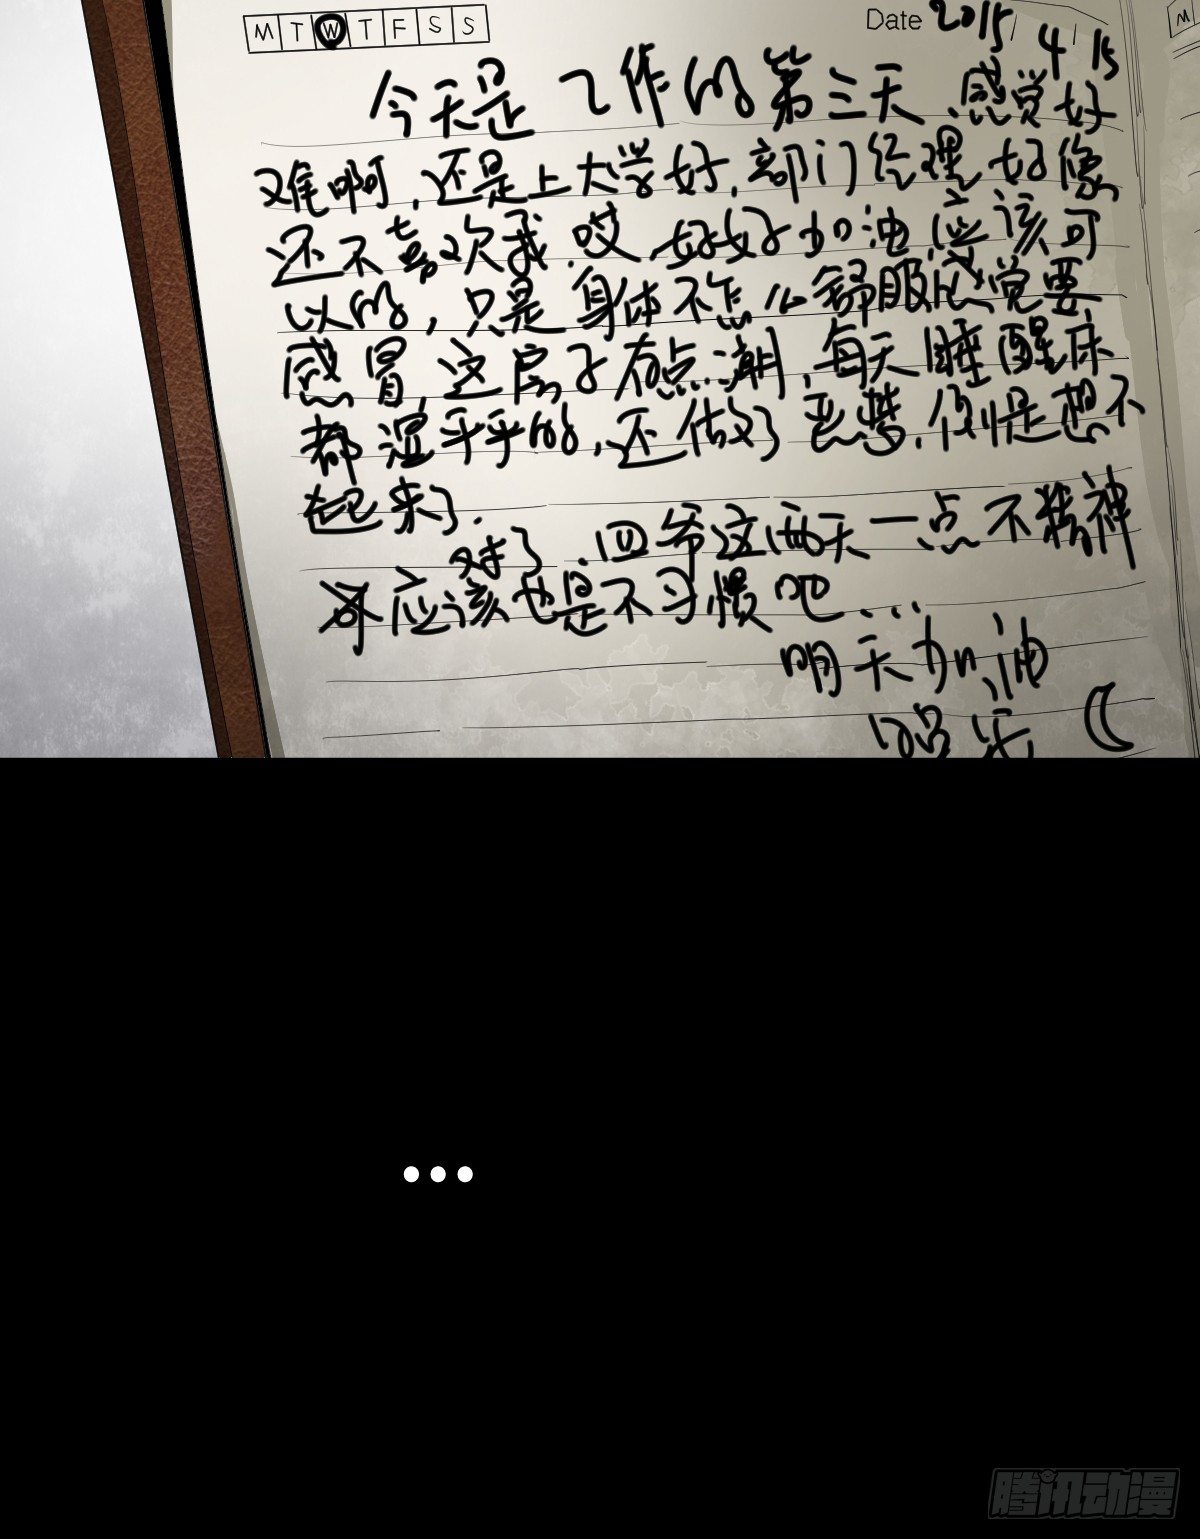 M T W T F S S
Date 2015 / 4 / 15
今天是工作的第三天.感觉好
难啊,还是上大学好,部门经理好像
还不喜欢我.哎,好好加油,应该可
以的,只是身体不怎么舒服感觉要
感冒,这房子有点潮,每天睡醒床
都湿乎乎的,还做了恶梦,倒是想不
起来了.
对了.四爷这两天一点不精神
应该也是不习惯吧...
明天加油
M
•••
腾讯动漫